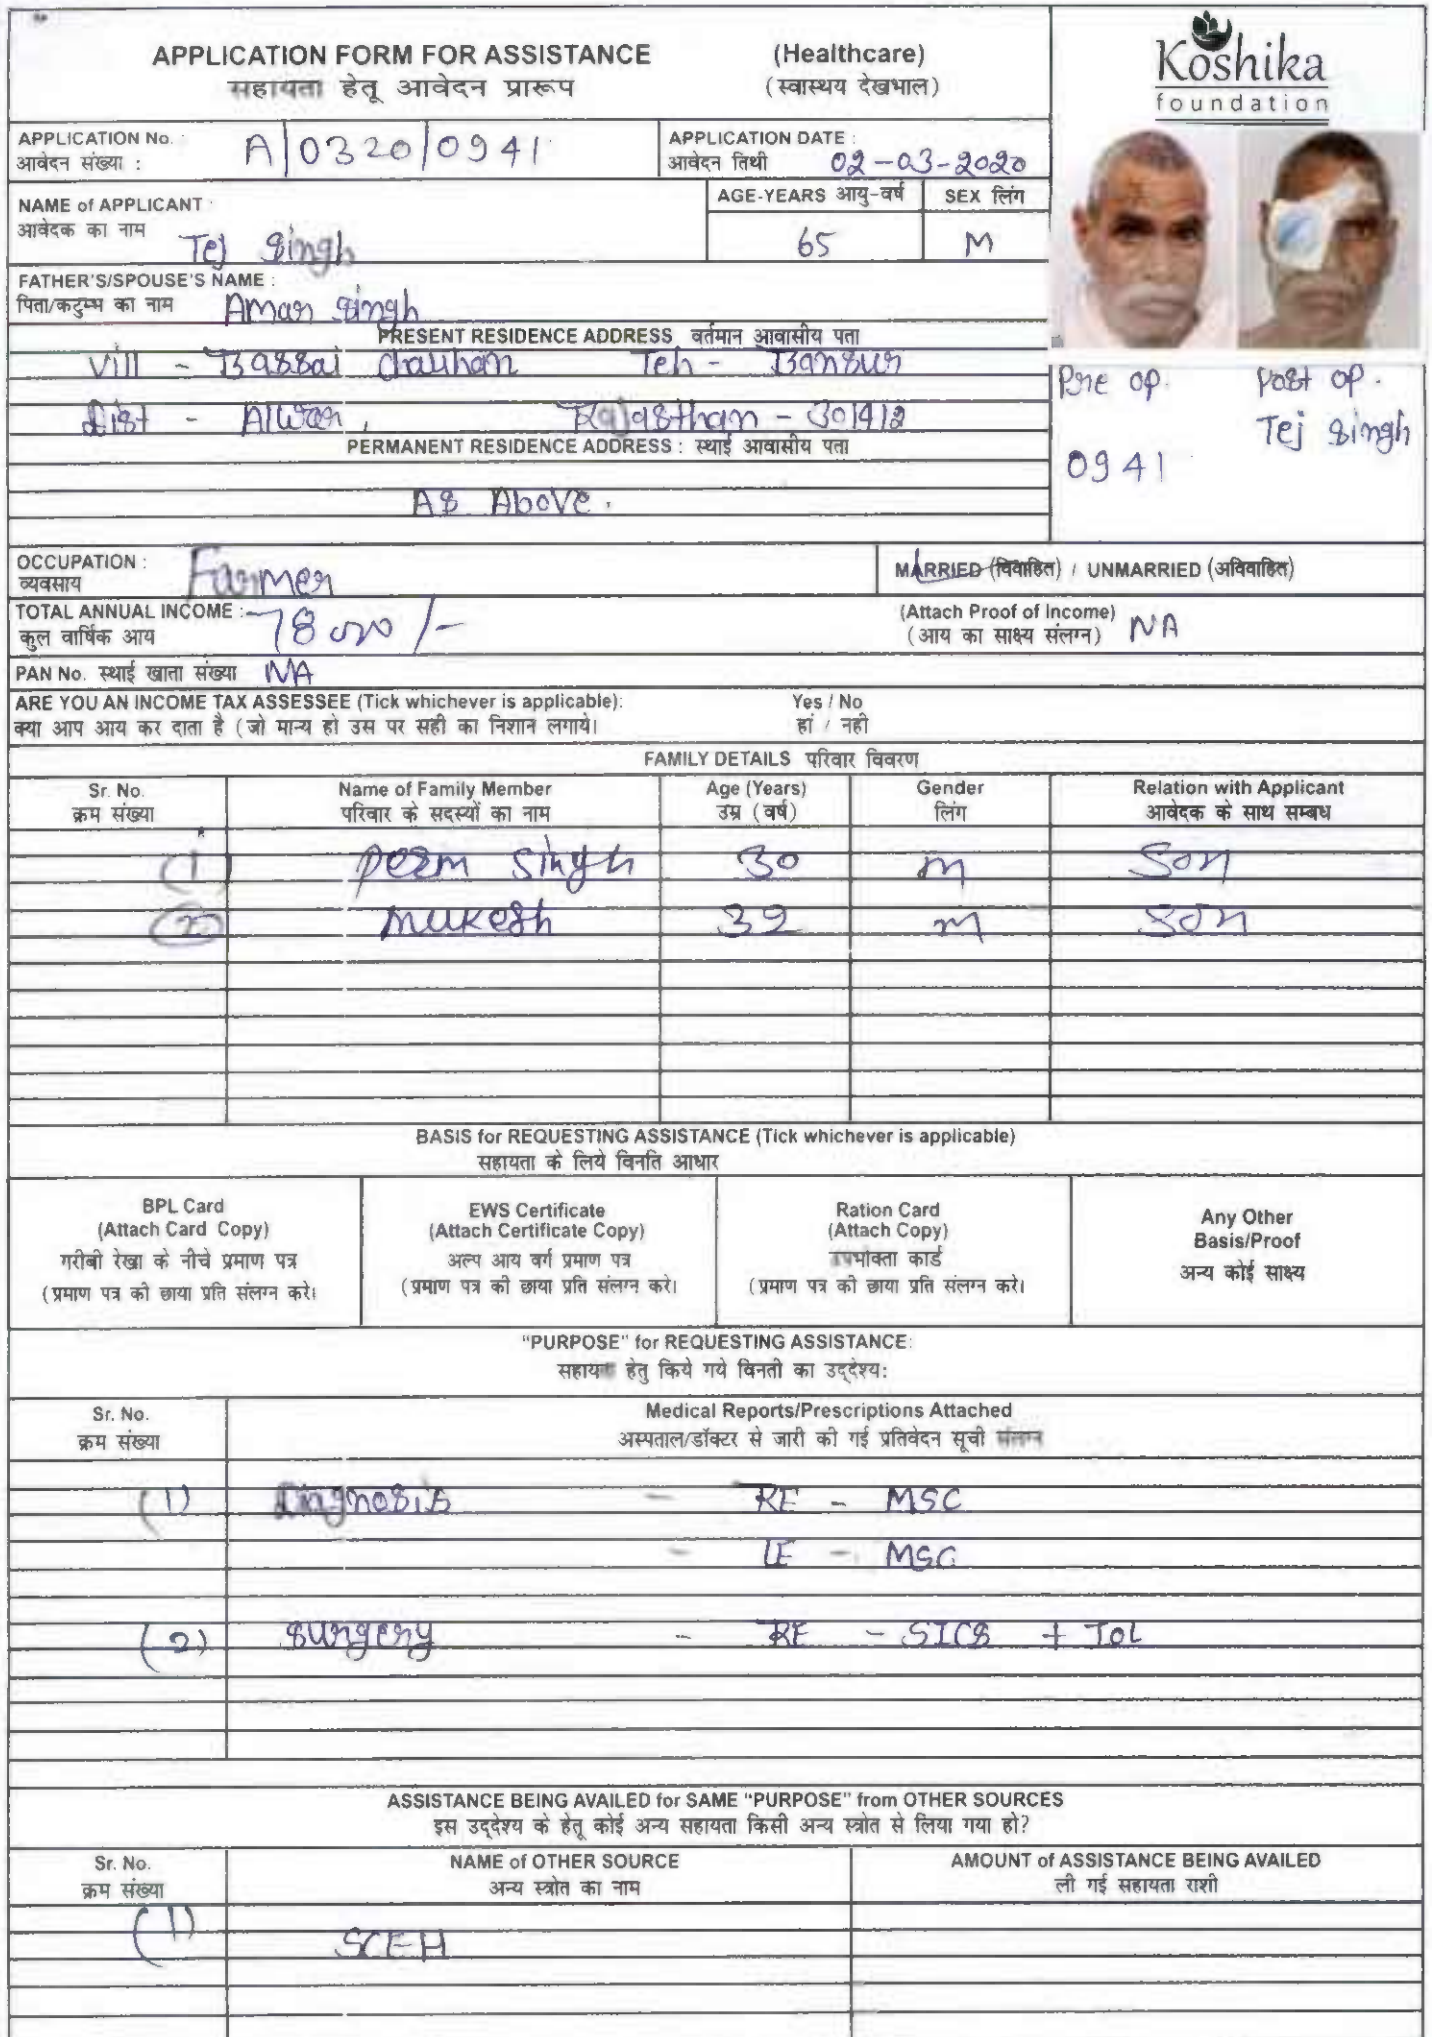 APPLICATION FORM FOR ASSISTANCE (Healthcare)
सहायता हेतू आवेदन प्रारूप (स्वास्थय देखभाल)
Koshika
foundation
APPLICATION No. :
आवेदन संख्या : A/0320/0941
APPLICATION DATE :
आवेदन तिथी 02-03-2020
NAME of APPLICANT :
आवेदक का नाम Tej Singh
AGE-YEARS आयु-वर्ष
65
SEX लिंग
M
FATHER'S/SPOUSE'S NAME :
पिता/कटुम्भ का नाम Amar Singh
PRESENT RESIDENCE ADDRESS वर्तमान आवासीय पता
Vill - Bassai Chauhan Teh - Bansur
Dist - Alwar, Rajasthan - 301412
PERMANENT RESIDENCE ADDRESS : स्थाई आवासीय पता
As Above.
Pre op. Post op.
Tej Singh
0941
OCCUPATION :
व्यवसाय Farmer
MARRIED (विवाहित) / UNMARRIED (अविवाहित)
TOTAL ANNUAL INCOME :
कुल वार्षिक आय 78000/-
(Attach Proof of Income)
(आय का साक्ष्य संलग्न) NA
PAN No. स्थाई खाता संख्या NA
ARE YOU AN INCOME TAX ASSESSEE (Tick whichever is applicable): Yes / No
क्या आप आय कर दाता है (जो मान्य हो उस पर सही का निशान लगाये। हां / नही
FAMILY DETAILS परिवार विवरण
Sr. No. Name of Family Member Age (Years) Gender Relation with Applicant
क्रम संख्या परिवार के सदस्यों का नाम उम्र (वर्ष) लिंग आवेदक के साथ सम्बध
(1) Peem Singh 30 M Son
(2) Mukesh 32 M Son
BASIS for REQUESTING ASSISTANCE (Tick whichever is applicable)
सहायता के लिये विनति आधार
BPL Card
(Attach Card Copy)
गरीबी रेखा के नीचे प्रमाण पत्र
(प्रमाण पत्र की छाया प्रति संलग्न करे।
EWS Certificate
(Attach Certificate Copy)
अल्प आय वर्ग प्रमाण पत्र
(प्रमाण पत्र की छाया प्रति संलग्न करे।
Ration Card
(Attach Copy)
उपभोक्ता कार्ड
(प्रमाण पत्र की छाया प्रति संलग्न करे।
Any Other
Basis/Proof
अन्य कोई साक्ष्य
"PURPOSE" for REQUESTING ASSISTANCE:
सहायता हेतु किये गये विनती का उद्देश्य:
Sr. No. Medical Reports/Prescriptions Attached
क्रम संख्या अस्पताल/डॉक्टर से जारी की गई प्रतिवेदन सूची संलग्न
(1) Diagnosis - RE - MSC
- LE - MSC
(2) Surgery - RE - SICS + IOL
ASSISTANCE BEING AVAILED for SAME "PURPOSE" from OTHER SOURCES
इस उद्देश्य के हेतू कोई अन्य सहायता किसी अन्य स्त्रोत से लिया गया हो?
Sr. No. NAME of OTHER SOURCE AMOUNT of ASSISTANCE BEING AVAILED
क्रम संख्या अन्य स्त्रोत का नाम ली गई सहायता राशी
(1) SCEH